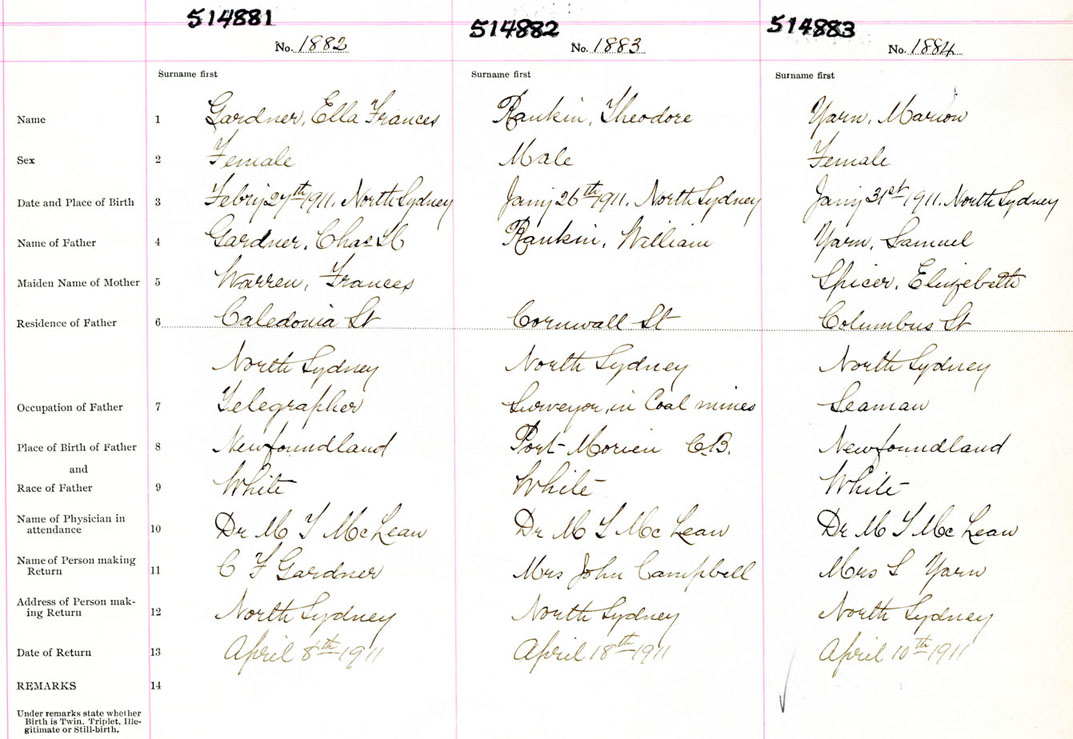 514881 514882 514883
No. 1882 No. 1883 No. 1884
Surname first Surname first Surname first
Name 1 Gardner, Ella Frances Rankin, Theodore Yarn, Marion
Sex 2 Female Male Female
Date and Place of Birth 3 Febry 27th 1911. North Sydney Jany 26th 1911. North Sydney Jany 31st 1911. North Sydney
Name of Father 4 Gardner, Chas Rankin, William Yarn, Samuel
Maiden Name of Mother 5 Warren, Frances Spicer, Elizebeth
Residence of Father 6 Caledonia St Cornwall St Columbus St
North Sydney North Sydney North Sydney
Occupation of Father 7 Telegrapher Surveyor, in Coal mines Seaman
Place of Birth of Father 8 Newfoundland Port-Morien C.B. Newfoundland
and
Race of Father 9 White White White
Name of Physician in
attendance 10 Dr M T McLean Dr M T McLean Dr M T McLean
Name of Person making
Return 11 C F Gardner Mrs John Campbell Mrs S Yarn
Address of Person mak-
ing Return 12 North Sydney North Sydney North Sydney
Date of Return 13 April 8th 1911 April 18th 1911 April 10th 1911
REMARKS 14
Under remarks state whether
Birth is Twin, Triplet, Ille-
gitimate or Still-birth.